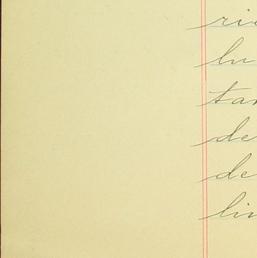 ri
lu
tan
de
de
lin